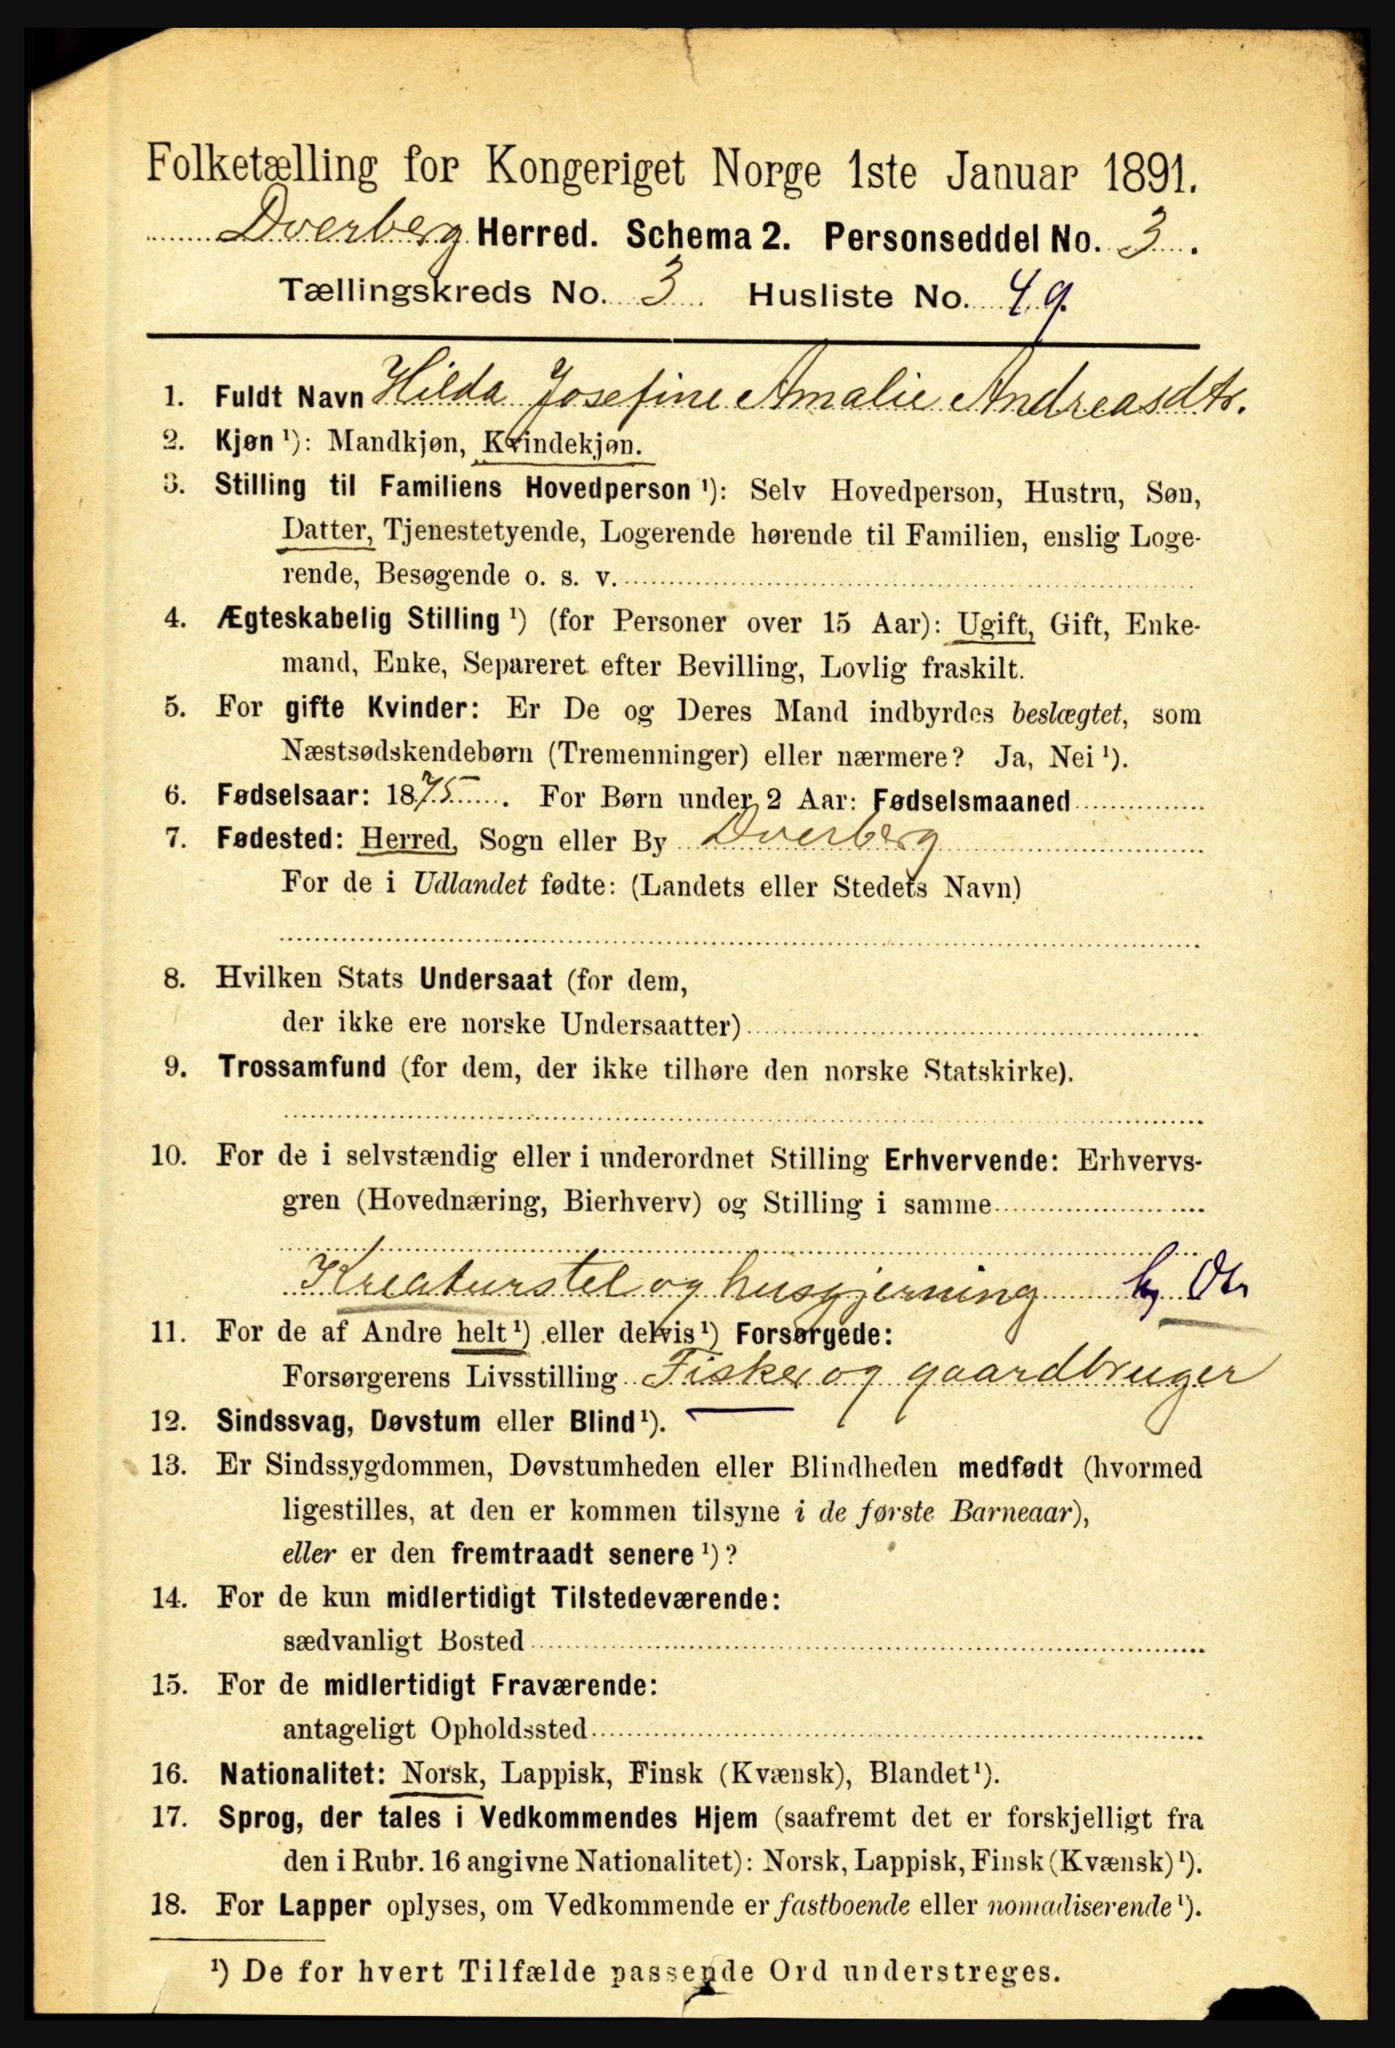 Folketælling for Kongeriget Norge 1ste Januar 1891.
Dverberg Herred. Schema 2. Personseddel No. 3.
Tællingskreds No. 3 Husliste No. 49.
1. Fuldt Navn Hilda Josefine Amalie Andreasdtr.
2. Kjøn ¹): Mandkjøn, Kvindekjøn.
3. Stilling til Familiens Hovedperson ¹): Selv Hovedperson, Hustru, Søn,
Datter, Tjenestetyende, Logerende hørende til Familien, enslig Loge-
rende, Besøgende o. s. v.
4. Ægteskabelig Stilling ¹) (for Personer over 15 Aar): Ugift, Gift, Enke-
mand, Enke, Separeret efter Bevilling, Lovlig fraskilt.
5. For gifte Kvinder: Er De og Deres Mand indbyrdes beslægtet, som
Næstsødskendebørn (Tremenninger) eller nærmere? Ja, Nei ¹).
6. Fødselsaar: 1875. For Børn under 2 Aar: Fødselsmaaned
7. Fødested: Herred, Sogn eller By Dverberg
For de i Udlandet fødte: (Landets eller Stedets Navn)
8. Hvilken Stats Undersaat (for dem,
der ikke ere norske Undersaatter)
9. Trossamfund (for dem, der ikke tilhøre den norske Statskirke).
10. For de i selvstændig eller i underordnet Stilling Erhvervende: Erhvervs-
gren (Hovednæring, Bierhverv) og Stilling i samme
Kreaturstel og husgjerning
11. For de af Andre helt ¹) eller delvis ¹) Forsørgede:
Forsørgerens Livsstilling Fisker og gaardbruger
12. Sindssvag, Døvstum eller Blind ¹).
13. Er Sindssygdommen, Døvstumheden eller Blindheden medfødt (hvormed
ligestilles, at den er kommen tilsyne i de første Barneaar),
eller er den fremtraadt senere ¹)?
14. For de kun midlertidigt Tilstedeværende:
sædvanligt Bosted
15. For de midlertidigt Fraværende:
antageligt Opholdssted
16. Nationalitet: Norsk, Lappisk, Finsk (Kvænsk), Blandet ¹).
17. Sprog, der tales i Vedkommendes Hjem (saafremt det er forskjelligt fra
den i Rubr. 16 angivne Nationalitet): Norsk, Lappisk, Finsk (Kvænsk) ¹).
18. For Lapper oplyses, om Vedkommende er fastboende eller nomadiserende ¹).
¹) De for hvert Tilfælde passende Ord understreges.